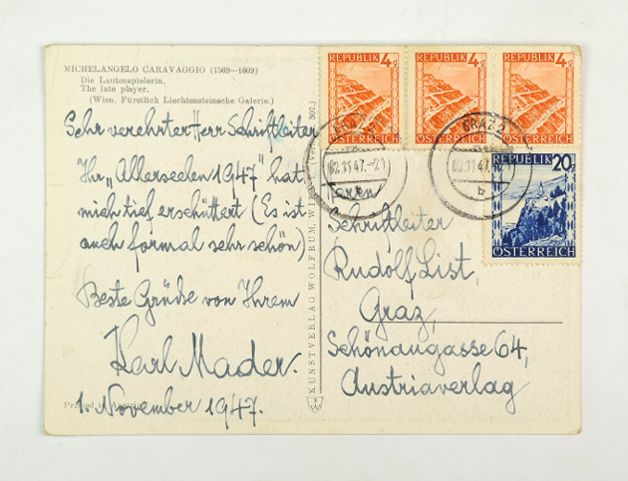 MICHELANGELO CARAVAGGIO (1569—1609)
Die Lautenspielerin.
The lute player.
(Wien, Fürstlich Liechtensteinsche Galerie.)
Sehr verehrter Herr Schriftleiter
Ihr „Allerseelen 1947" hat
mich tief erschüttert (Es ist
auch formal sehr schön)
Beste Grüße von Ihrem
Karl Mader.
1. November 1947.
Printed in Austria
KUNSTVERLAG WOLFRUM, WIEN
307.)
REPUBLIK 4g
ÖSTERREICH
REPUBLIK 4g
ÖSTERREICH
REPUBLIK 4g
ÖSTERREICH
REPUBLIK 20g
ÖSTERREICH
GRAZ 2
02.11.47.-21
b
GRAZ 2
02.11.47.
b
Herrn
Schriftleiter
Rudolf List,
Graz,
Schönaugasse 64,
Austriaverlag